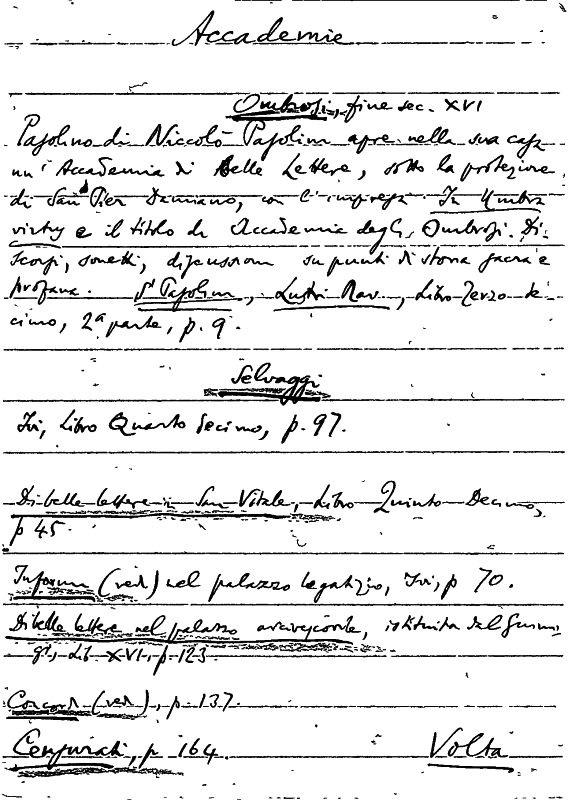 Accademie
Ombrosi, fine sec. XVI
Pasolino di Niccolò Pasolini apre nella sua casa
un'Accademia di Belle Lettere, sotto la protezione
di San Pier Damiano, con l'impresa In Umbra
virtus e il titolo di Accademia degli Ombrosi. Di-
scorsi, sonetti, discussioni su punti di storia sacra e
profana. Pasolini, Lustri Rav., Libro Terzo de-
cimo, 2ª parte, p. 9.
Selvaggi
Ivi, Libro Quarto Decimo, p. 97.
Di belle lettere in San Vitale, Libro Quinto Decimo,
p 45.
Informi (ved.) nel palazzo legatizio, Ivi, p 70.
Di belle lettere nel palazzo arcivescovile, istituita dal
Lib. XVI, p. 123
Concordi (ved.), p. 137.
Censurati, p 164. Volta